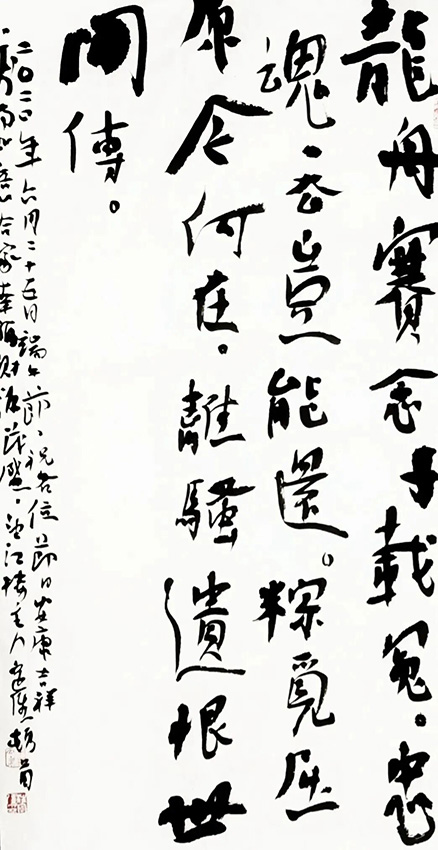 龍舟賽念千載冤。忠
魂一去豈能還。粽覓屈
原今何在。離騷遺恨世
間傳。
二〇二〇年六月二十五日端午節、祝各位節日安康吉祥
萬事如意合家幸福財源茂盛、望江樓主人頓首